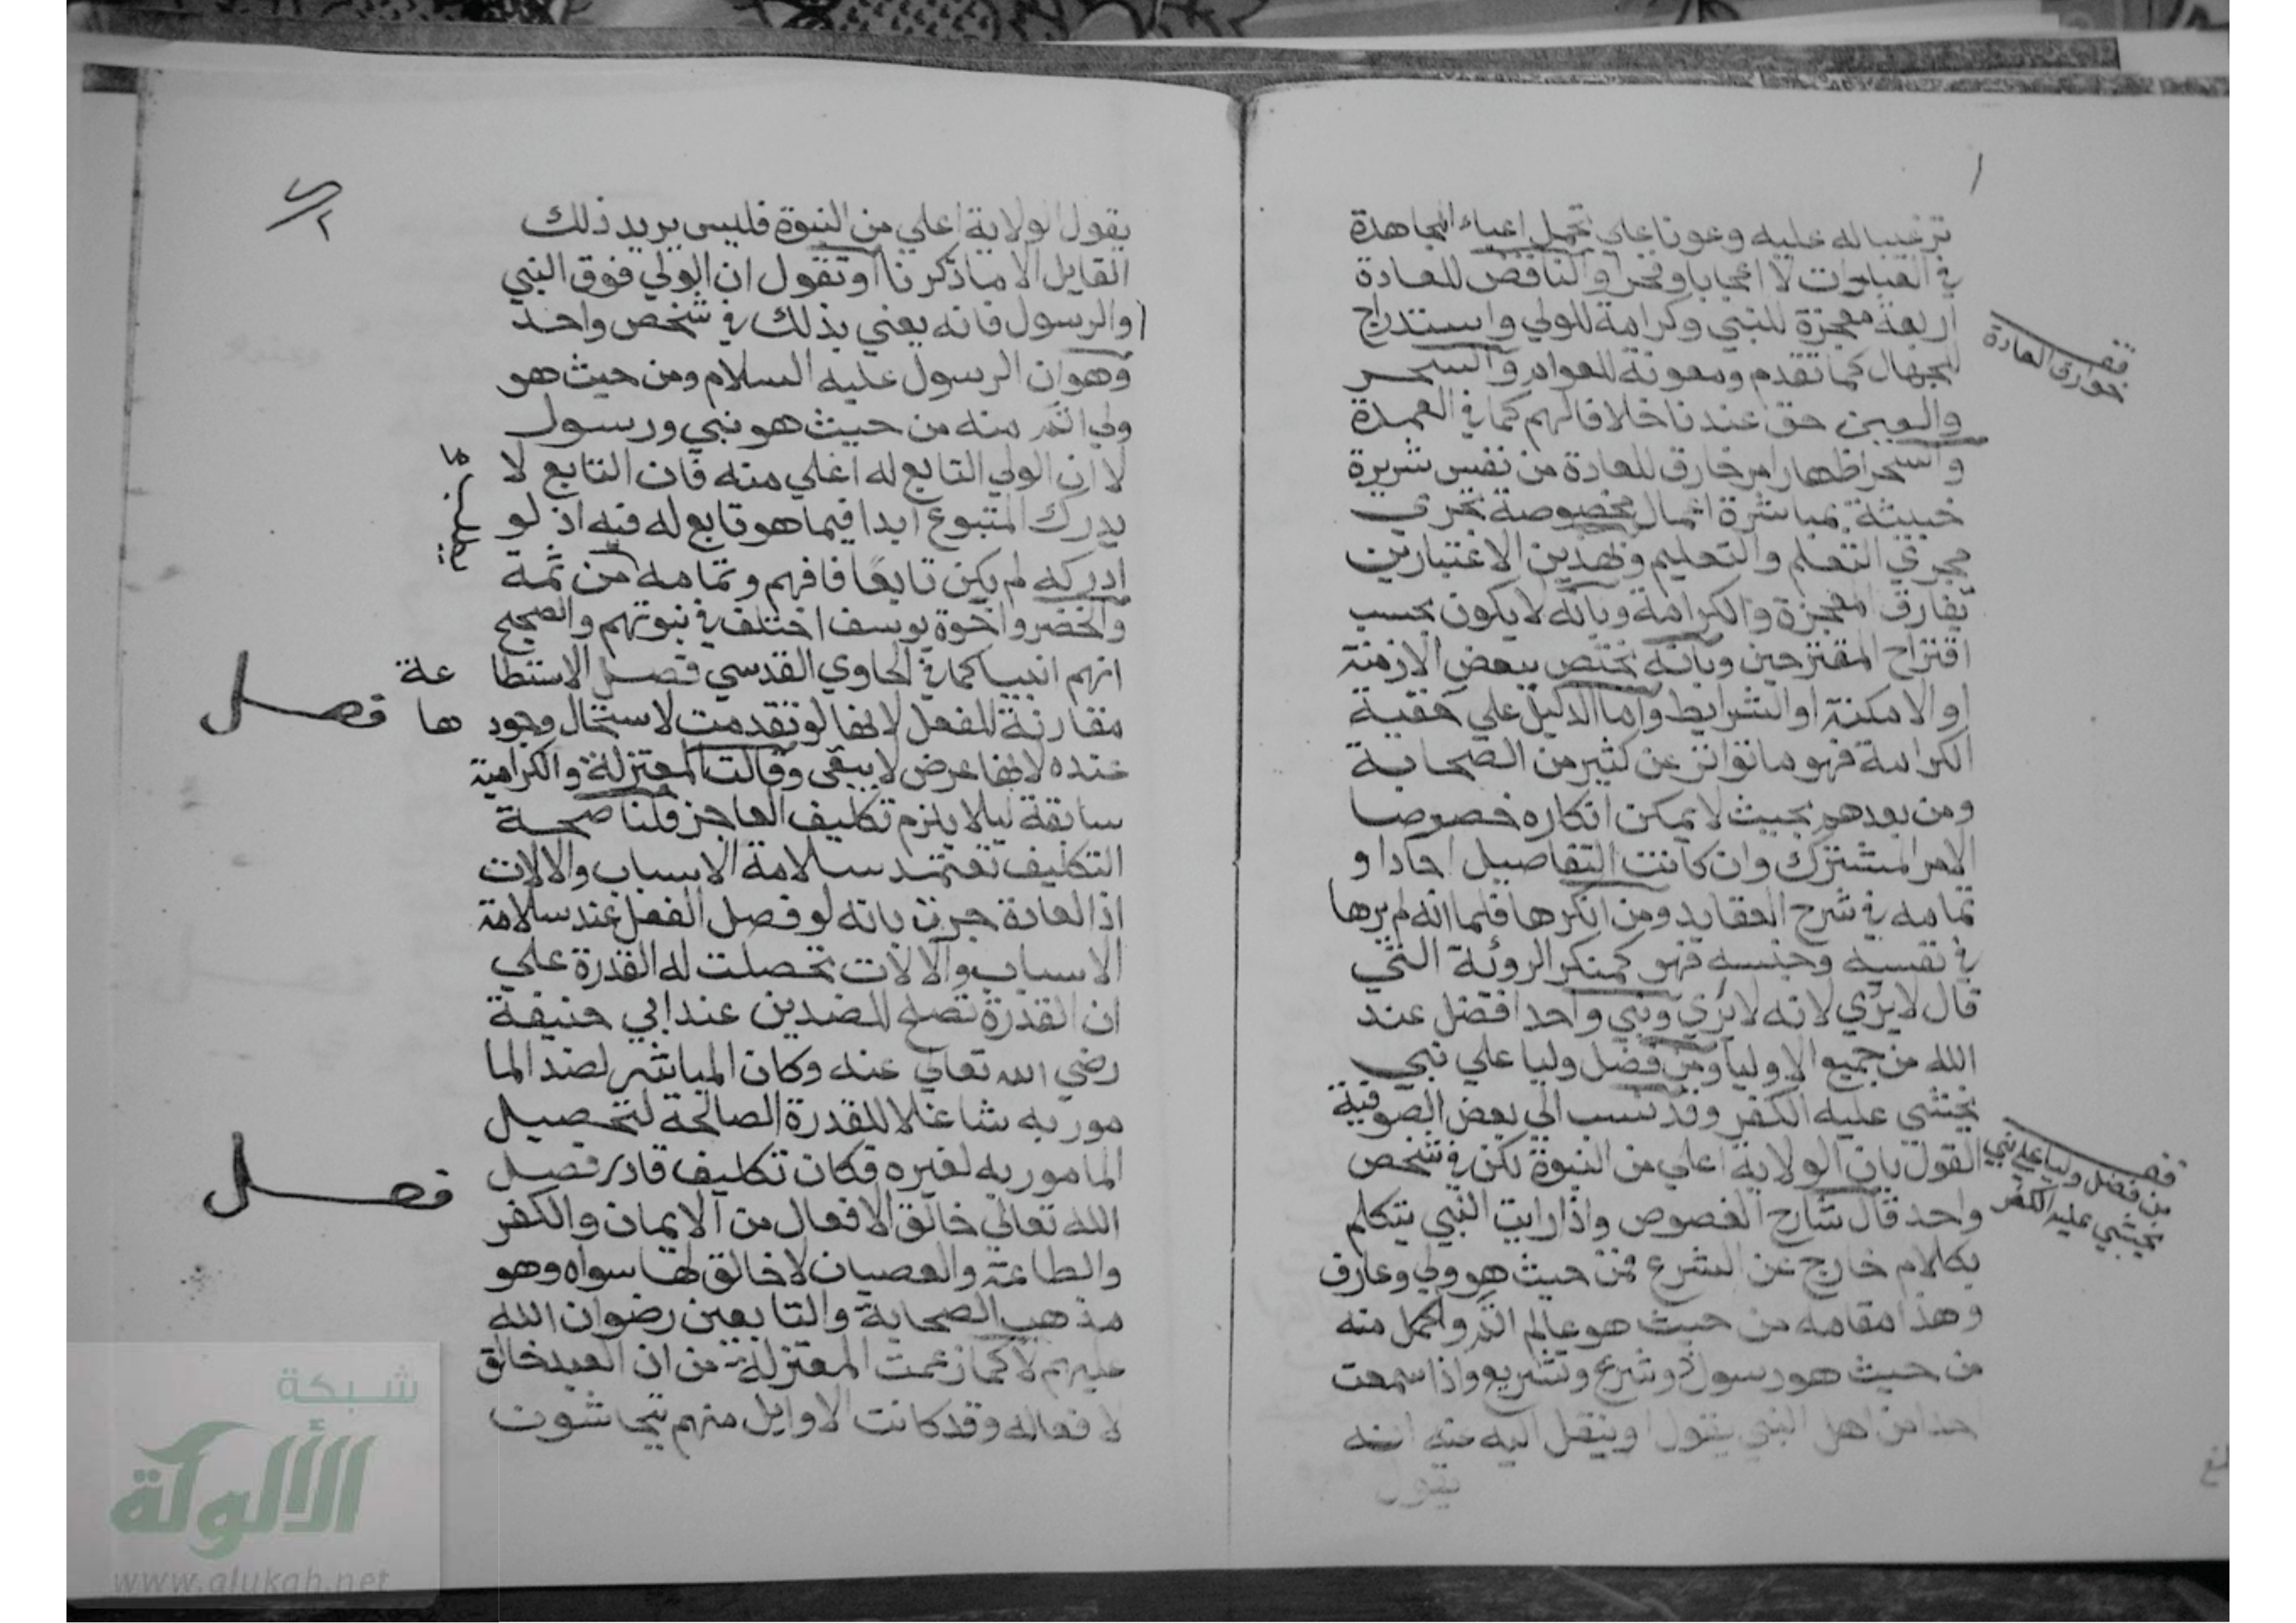 ترغيبا له عليه وعونا على تحمل اعباء المجاهدة
في العبادات لا اعجابا وفخرا والناقض للعادة
اربعة معجزة للنبي وكرامة للولي واستدراج
للجهال كما تقدم ومعونة للعوام والسحر
والعين حق عندنا خلافا لهم كما في العمدة
والسحر اظهار امر خارق للعادة من نفس شريرة
خبيثة بمباشرة اعمال مخصوصة تجري
مجري التعلم والتعليم وبهذين الاعتبارين
تفارق المعجزة والكرامة وبانه لا يكون بحسب
اقتراح المقترحين وبانه يختص ببعض الازمنة
او الامكنة او الشرايط واما الدليل علي حقية
الكرامة فهو ما تواتر عن كثير من الصحابة
ومن بعدهم بحيث لا يمكن انكاره خصوصا
الامر المشترك وان كانت التفاصيل احادا و
تمامه في شرح العقايد ومن انكرها فلما انه لم يرها
في نفسه وجنسه فهو كمنكر الروئة التي
قال لا يري لانه لا يري ونبي واحد افضل عند
الله من جميع الاوليا ومن فضل وليا علي نبي
يخشي عليه الكفر وقد نسب الي بعض الصوفية
القول بان الولاية اعلي من النبوة لكن في شخص
واحد قال شارح الفصوص واذا رايت النبي يتكلم
بكلام خارج عن الشرع فمن حيث هو ولي وعارف
وهذا مقامه من حيث هو عالم اتم واكمل منه
من حيث هو رسول ذو شرع وتشريع واذا سمعت
احدا من اهل النبي يقول او ينقل اليه عنه انه
يقول
خوارق العادة
من فضل وليا علي نبي
يخشي عليه الكفر
يقول الولاية اعلي من النبوة فليس يريد ذلك
القايل الا ما ذكرنا او تقول ان الولي فوق النبي
والرسول فانه يعني بذلك في شخص واحد
وهو ان الرسول عليه السلام ومن حيث هو
ولي اتم منه من حيث هو نبي ورسول
لا ان الولي التابع له اعلي منه فان التابع لا
يدرك المتبوع ابدا فيما هو تابع له فيه اذ لو
ادركه لم يكن تابعا فافهم وتمامه من ثمة
والخضر واخوة يوسف اختلف في نبوتهم والصحيح
انهم انبيا كما في الحاوي القدسي فصل الاستطاعة
مقارنة للفعل لانها لو تقدمت لاستحال وجودها
عنده لانها عرض لا يبقى وقالت المعتزلة والكرامية
سابقة ليلا يلزم تكليف العاجز قلنا صحة
التكليف تعتمد سلامة الاسباب والالات
اذ العادة جرت بانه لو فصل الفعل عند سلامة
الاسباب والالات تحصلت له القدرة علي
ان القدرة تصلح للضدين عند ابي حنيفة
رضي الله تعالي عنه وكان المباشر لضد الما
مور به شاغلا للقدرة الصالحة لتحصيل
المامور به لغيره فكان تكليف قادر فصل
الله تعالي خالق الافعال من الايمان والكفر
والطاعة والعصيان لا خالق لها سواه وهو
مذهب الصحابة والتابعين رضوان الله
عليهم لا كما زعمت المعتزلة من ان العبد خالق
لافعاله وقد كانت الاوايل منهم يتحاشون
فصل
فصل
شبكة
الألوكة
www.alukah.net